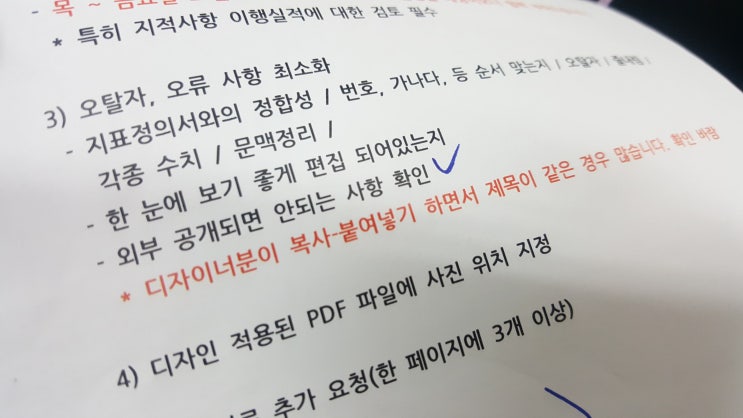 - 목 ~ 금요일
* 특히 지적사항 이행실적에 대한 검토 필수
3) 오탈자, 오류 사항 최소화
- 지표정의서와의 정합성 / 번호, 가나다, 등 순서 맞는지 / 오탈자 /
각종 수치 / 문맥정리 /
- 한 눈에 보기 좋게 편집 되어있는지
- 외부 공개되면 안되는 사항 확인
* 디자이너분이 복사-붙여넣기 하면서 제목이 같은 경우 많습니다. 확인 바람
4) 디자인 적용된 PDF 파일에 사진 위치 지정
추가 요청(한 페이지에 3개 이상)